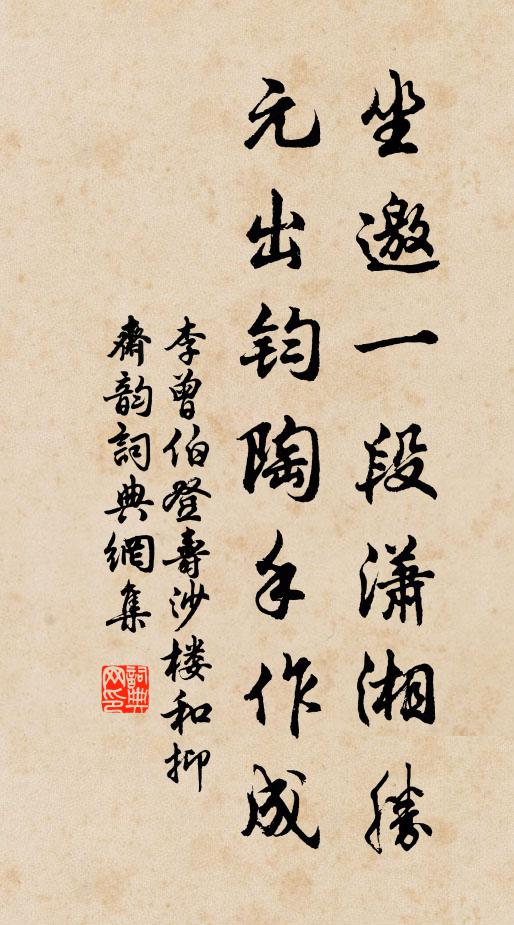 坐邀一段潇湘勝
元出鈞陶手作成
李曾伯登壽沙楼和抑
齋韵詞典網集
詞典
网印